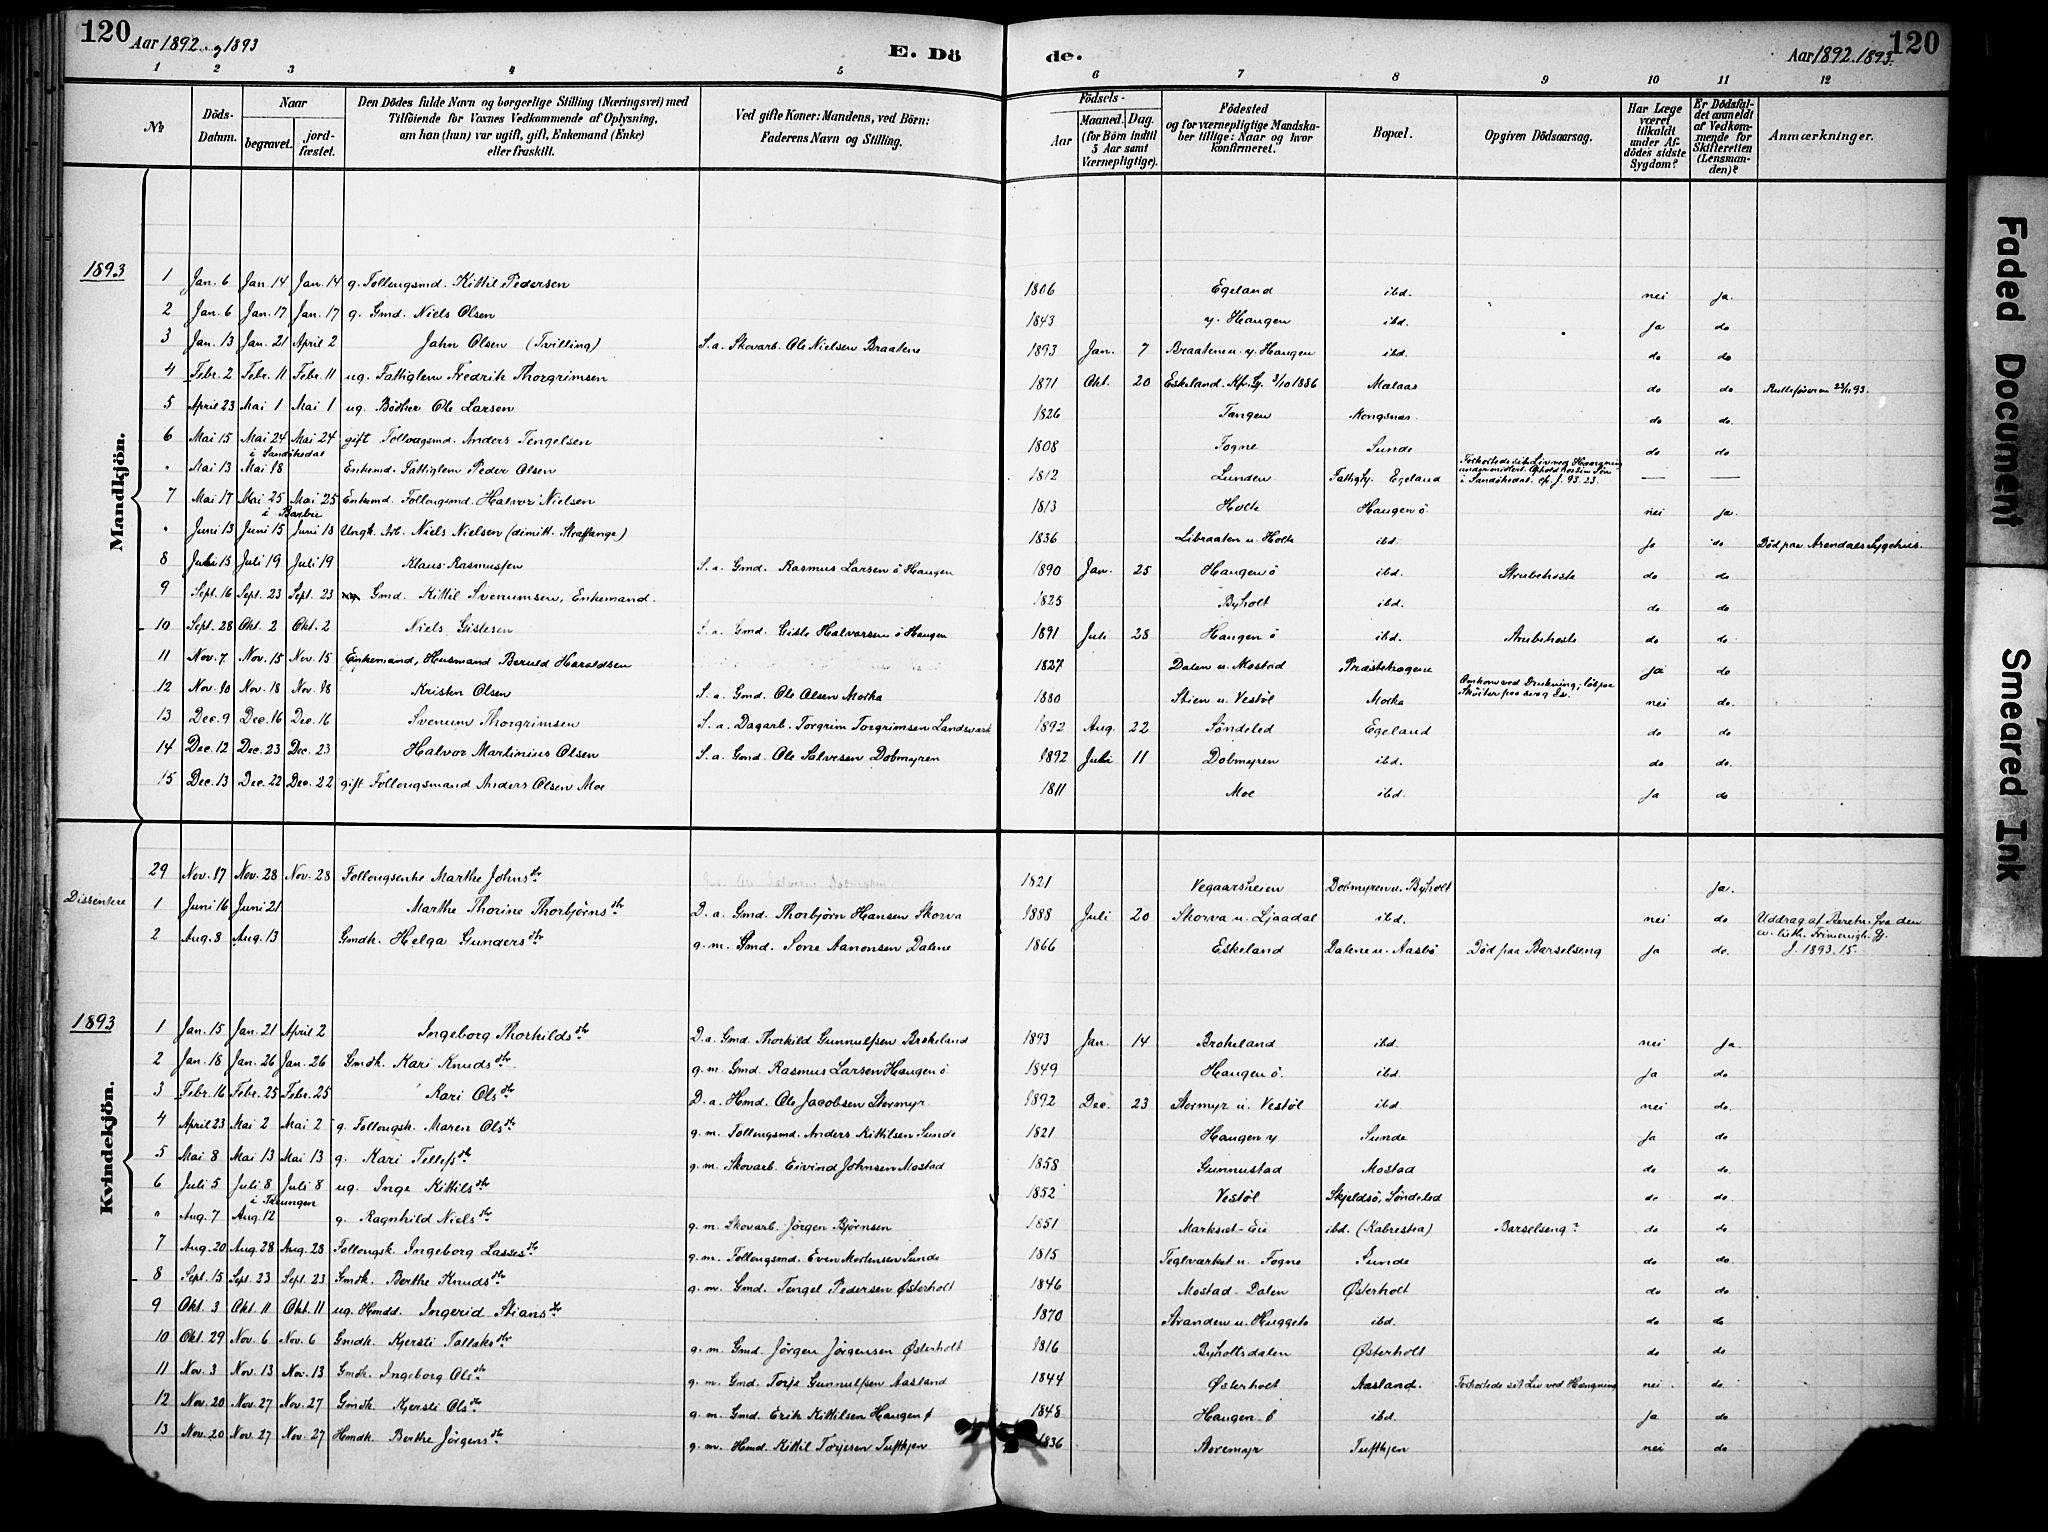 120 Aar 1892 og 1893 E. Dö de. Aar 1892. 1893. 120
1 2 3 4 5 6 7 8 9 10 11 12
No Döds-Datum. Naar begravet. jordfæstet. Den Dödes fulde Navn og borgerlige Stilling (Næringsvei) med Tilföiende for Voxnes Vedkommende af Oplysning, om han (hun) var ugift, gift, Enkemand (Enke) eller fraskilt. Ved gifte Koner: Mandens, ved Börn: Faderens Navn og Stilling. Födsels- Aar Maaned. Dag. (for Börn indtil 5 Aar samt Værnepligtige). Födested og for værnepligtige Mandskaber tillige: Naar og hvor konfirmeret. Bopæl. Opgiven Dödsaarsag. Har Læge været tilkaldt under Afdödes sidste Sygdom? Er Dödsfaldet anmeldt af Vedkommende for Skifteretten (Lensmanden)? Anmærkninger.
Mandkjön.
1893
1 Jan. 6 Jan. 14 Jan. 14 g. Follougsmd. Kittil Pedersen 1806 Egeland ibd. nei ja.
2 Jan. 6 Jan. 17 Jan. 17 g. Gmd. Niels Olsen 1843 y. Haugen ibd. ja do
3 Jan. 13 Jan. 21 April 2 Jahn Olsen (Tvilling) S. a. Skovarb. Ole Nielsen Braatene 1893 Jan. 7 Braatene u. y. Haugen ibd. do do
4 Febr. 2 Febr. 11 Febr. 11 ug. Fattiglem Fredrik Thorgrimsen 1871 Okt. 20 Eskeland. Kfr. Gj. 3/10 1886 Mælaas do do Rulleføreren 23/11 93.
5 April 23 Mai 1 Mai 1 ug. Bödker Ole Larsen 1826 Tangen Kongsnæs do do.
6 Mai 15 Mai 24 Mai 24 gift Follougsmd. Anders Tengelsen 1808 Fogne Sunde do do.
i Sandökedal
" Mai 13 Mai 18 Enkemd. Fattiglem Peder Olsen 1812 Lunden Fattigly. Egeland Forkortede sit Liv ved Hængning under midlert. Ophold hos sin Søn i Sandökedal. cf. J. 93. 23. — —
7 Mai 17 Mai 25 Mai 25 Enkemd Follougsmd. Halvor Nielsen 1813 Holte Haugen ö nei ja.
i Barbu
" Juni 13 Juni 15 Juni 18 Ungk. Arb. Niels Nielsen (dimitt. Straffange) 1836 Libraaten u. Holte ibd. ja do Död paa Arendals Sygehus.
8 Juli 15 Juli 19 Juli 19 Klaus Rasmussen S. a. Gmd. Rasmus Larsen ö Haugen 1890 Jan. 25 Haugen ö ibd. Strubehoste do do
9 Sept. 16 Sept. 23 Sept. 23 Gmd. Kittil Svenumsen, Enkemand. 1825 Byholt ibd. do do
10 Sept. 28 Okt. 2 Okt. 2 Niels Gislesen S. a. Gmd. Gisle Halvorsen ö Haugen 1891 Juli 28 Haugen ö ibd. Strubehoste do do
11 Nov. 7 Nov. 15 Nov. 15 Enkemand, Husmand Beruld Haroldsen 1827 Dalen u. Mostad Præstehagene ja do
12 Nov. 10 Nov. 18 Nov. 18 Kristen Olsen S. a. Gmd. Ole Olsen Morka 1880 Stien u. Vestöl Morka Omkom ved Drukning; löb paa Skøiter paa svag Is. nei do.
13 Dec. 9 Dec. 16 Dec. 16 Svenum Thorgrimsen S. a. Dagarb. Torgrim Torgrimsen Landsværk 1892 Aug. 22 Söndeled Egeland do do.
14 Dec. 12 Dec. 23 Dec. 23 Halvor Martinius Olsen S. a. Gmd. Ole Salvesen Dobmyren 1892 Juli 11 Dobmyren ibd. do do.
15 Dec. 13 Dec. 22 Dec. 22 gift Follougsmand Anders Olsen Moe 1811 Moe ibd. ja do
Kvindekjön.
29 Nov. 17 Nov. 28 Nov. 28 Follougsenke Marthe Johnsdtr 1821 Vegaarsheien Dobmyren u. Byholt ja.
Dissentere 1 Juni 16 Juni 21 Marthe Thorine Thorbjørnsdtr D. a. Gmd. Thorbjørn Hansen Skorva 1888 Juli 20 Skorva u. Ljaadal ibd. nei do Uddrag af Beretn. fra den ev. luth. Frimenigh. Gj. J. 1893. 15.
2 Aug. 8 Aug. 13 Gmdk. Helga Gundersdtr g. m. Gmd. Sone Aanonsen Dalene 1866 Eskeland Dalene u. Aasbö Död paa Barselseng ja do.
1893
1 Jan. 15 Jan. 21 April 2 Ingeborg Thorkildsdtr D. a. Gmd. Thorkild Gunnulfsen Brokeland 1893 Jan. 14 Brokeland ibd. nei ja.
2 Jan. 18 Jan. 26 Jan. 26 Gmdk. Kari Knudsdtr g. m. Gmd. Rasmus Larsen Haugen ö 1849 Haugen ö. ibd. ja do
3 Febr. 16 Febr. 25 Febr. 25 Kari Olsdtr D. a. Hmd. Ole Jacobsen Stormyr 1892 Dec. 23 Stormyr u. Vestöl ibd. nei do.
4 April 23 Mai 2 Mai 2 g. Follougsk. Maren Olsdtr g. m. Follougsmd. Anders Kittilsen Sunde 1821 Haugen y Sunde ja do
5 Mai 8 Mai 13 Mai 13 g. Kari Tellefsdtr g. m. Skovarb. Eivind Johnsen Mostad 1858 Gunnustad Mostad do do.
6 Juli 5 Juli 8 Juli 8 ug. Inge Kittilsdtr 1852 Vestöl Skjeldsö, Söndeled do do.
i Treungen
" Aug. 7 Aug. 12 g. Ragnhild Nielsdtr g. m. Skovarb. Jörgen Björnsen 1851 Marksæt-Eie ibd. (Kabrestea) Barselseng? do do
7 Aug. 20 Aug. 28 Aug. 28 Follougsk. Ingeborg Lassesdtr g. m. Follougsmd. Even Mortensen Sunde 1815 Teglværket u. Fogne Sunde do do.
8 Sept. 15 Sept. 23 Sept. 23 Gmdk. Berthe Knudsdtr g. m. Gmd. Tengel Pedersen Østerholt 1846 Mostad-Dalen Østerholt do do.
9 Okt. 3 Okt. 11 Okt. 11 ug. Hmdd. Ingerid Stiansdtr 1870 Stranden u. Huggets ibd. do do
10 Okt. 29 Nov. 6 Nov. 6 Gmdk. Kjersti Tallaksdtr g. m. Gmd. Jörgen Jörgensen Østerholt 1816 Byholtsdalen Østerholt do do
11 Nov. 3 Nov. 13 Nov. 13 Gmdk. Ingeborg Olsdtr g. m. Gmd. Torje Gunnulfsen Aasland 1844 Østerholt Aasland. Forkortede sit Liv ved Hængning nei do.
12 Nov. 20 Nov. 27 Nov. 27 Gmdk. Kjersti Olsdtr g. m. Gmd. Erik Kittilsen Haugen ö 1848 Haugen ö ibd. ja do
13 Nov. 20 Nov. 27 Nov. 27 Hmdk. Berthe Jörgensdtr g. m. Hmd. Kittil Torjesen Tuftkjen 1836 Storemyr Tuftkjen nei do
Faded Document
Smeared Ink